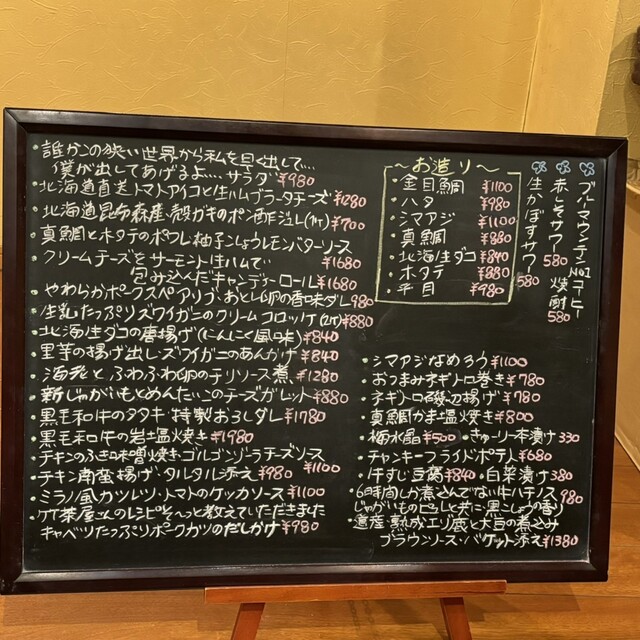 ・誰かこの狭い世界から私を早く出して…
僕が出してあげるよ…サラダ ¥980
北海道直送トマトアイコと生ハムブラータチーズ ¥1280
・北海道昆布森産殻ガキのポン酢ジュレ(1ケ) ¥700
・真鯛とホタテのポワレ柚子こしょうレモンバターソース
・クリームチーズをサーモンと生ハムで ¥1680
包み込んだキャンディーロール ¥1680
・やわらかポークスペアリブ、おとし卵の香味ダレ 980
・生乳たっぷりズワイガニのクリームコロッケ(2ケ) ¥880
・北海生ダコの唐揚げ(にんにく風味) ¥840
・里芋の揚げ出し・ズワイガニのあんかけ ¥840
・海老とふわふわ卵のチリソース煮 ¥1280
・新じゃがいもとめんたいこのチーズガレット ¥880
・黒毛和牛のタタキ・特製おろしダレ ¥1780
・黒毛和牛の岩塩焼き ¥1980
・チキンのふき味噌焼き・ゴルゴンゾーラチーズソース ¥1100
・チキン南蛮揚げ・タルタル添え ¥980
・ミラノ風カツレツ・トマトのケッカソース ¥1100
・竹茶屋さんのレシピをそ〜っと教えていただきました
キャベツたっぷりポークカツのだしかけ ¥980
〜お造り〜
・金目鯛 ¥1100
・ハタ ¥980
・シマアジ ¥1100
・真鯛 ¥880
・北海生ダコ ¥840
・ホタテ ¥880
・平目 ¥980
ブルーマウンテンNo1コーヒー焼酎 580
赤しそサワー 580
生かぼすサワー 580
・シマアジなめろう ¥1100
・おつまみネギトロ巻き ¥780
・ネギトロ磯辺揚げ ¥780
・真鯛かま塩焼き ¥800
・梅水晶 ¥500 ・きゅうり一本漬け 330
・チャンキーフライドポテト ¥680
・牛すじ豆腐 ¥840 ・白菜漬け 380
・6時間しか煮込んでない牛ハチノス
じゃがいものピュレと共に・黒こしょうの香り 980
・道産・熟成エゾ鹿と大豆の煮込み
ブラウンソース・バゲット添え ¥1380